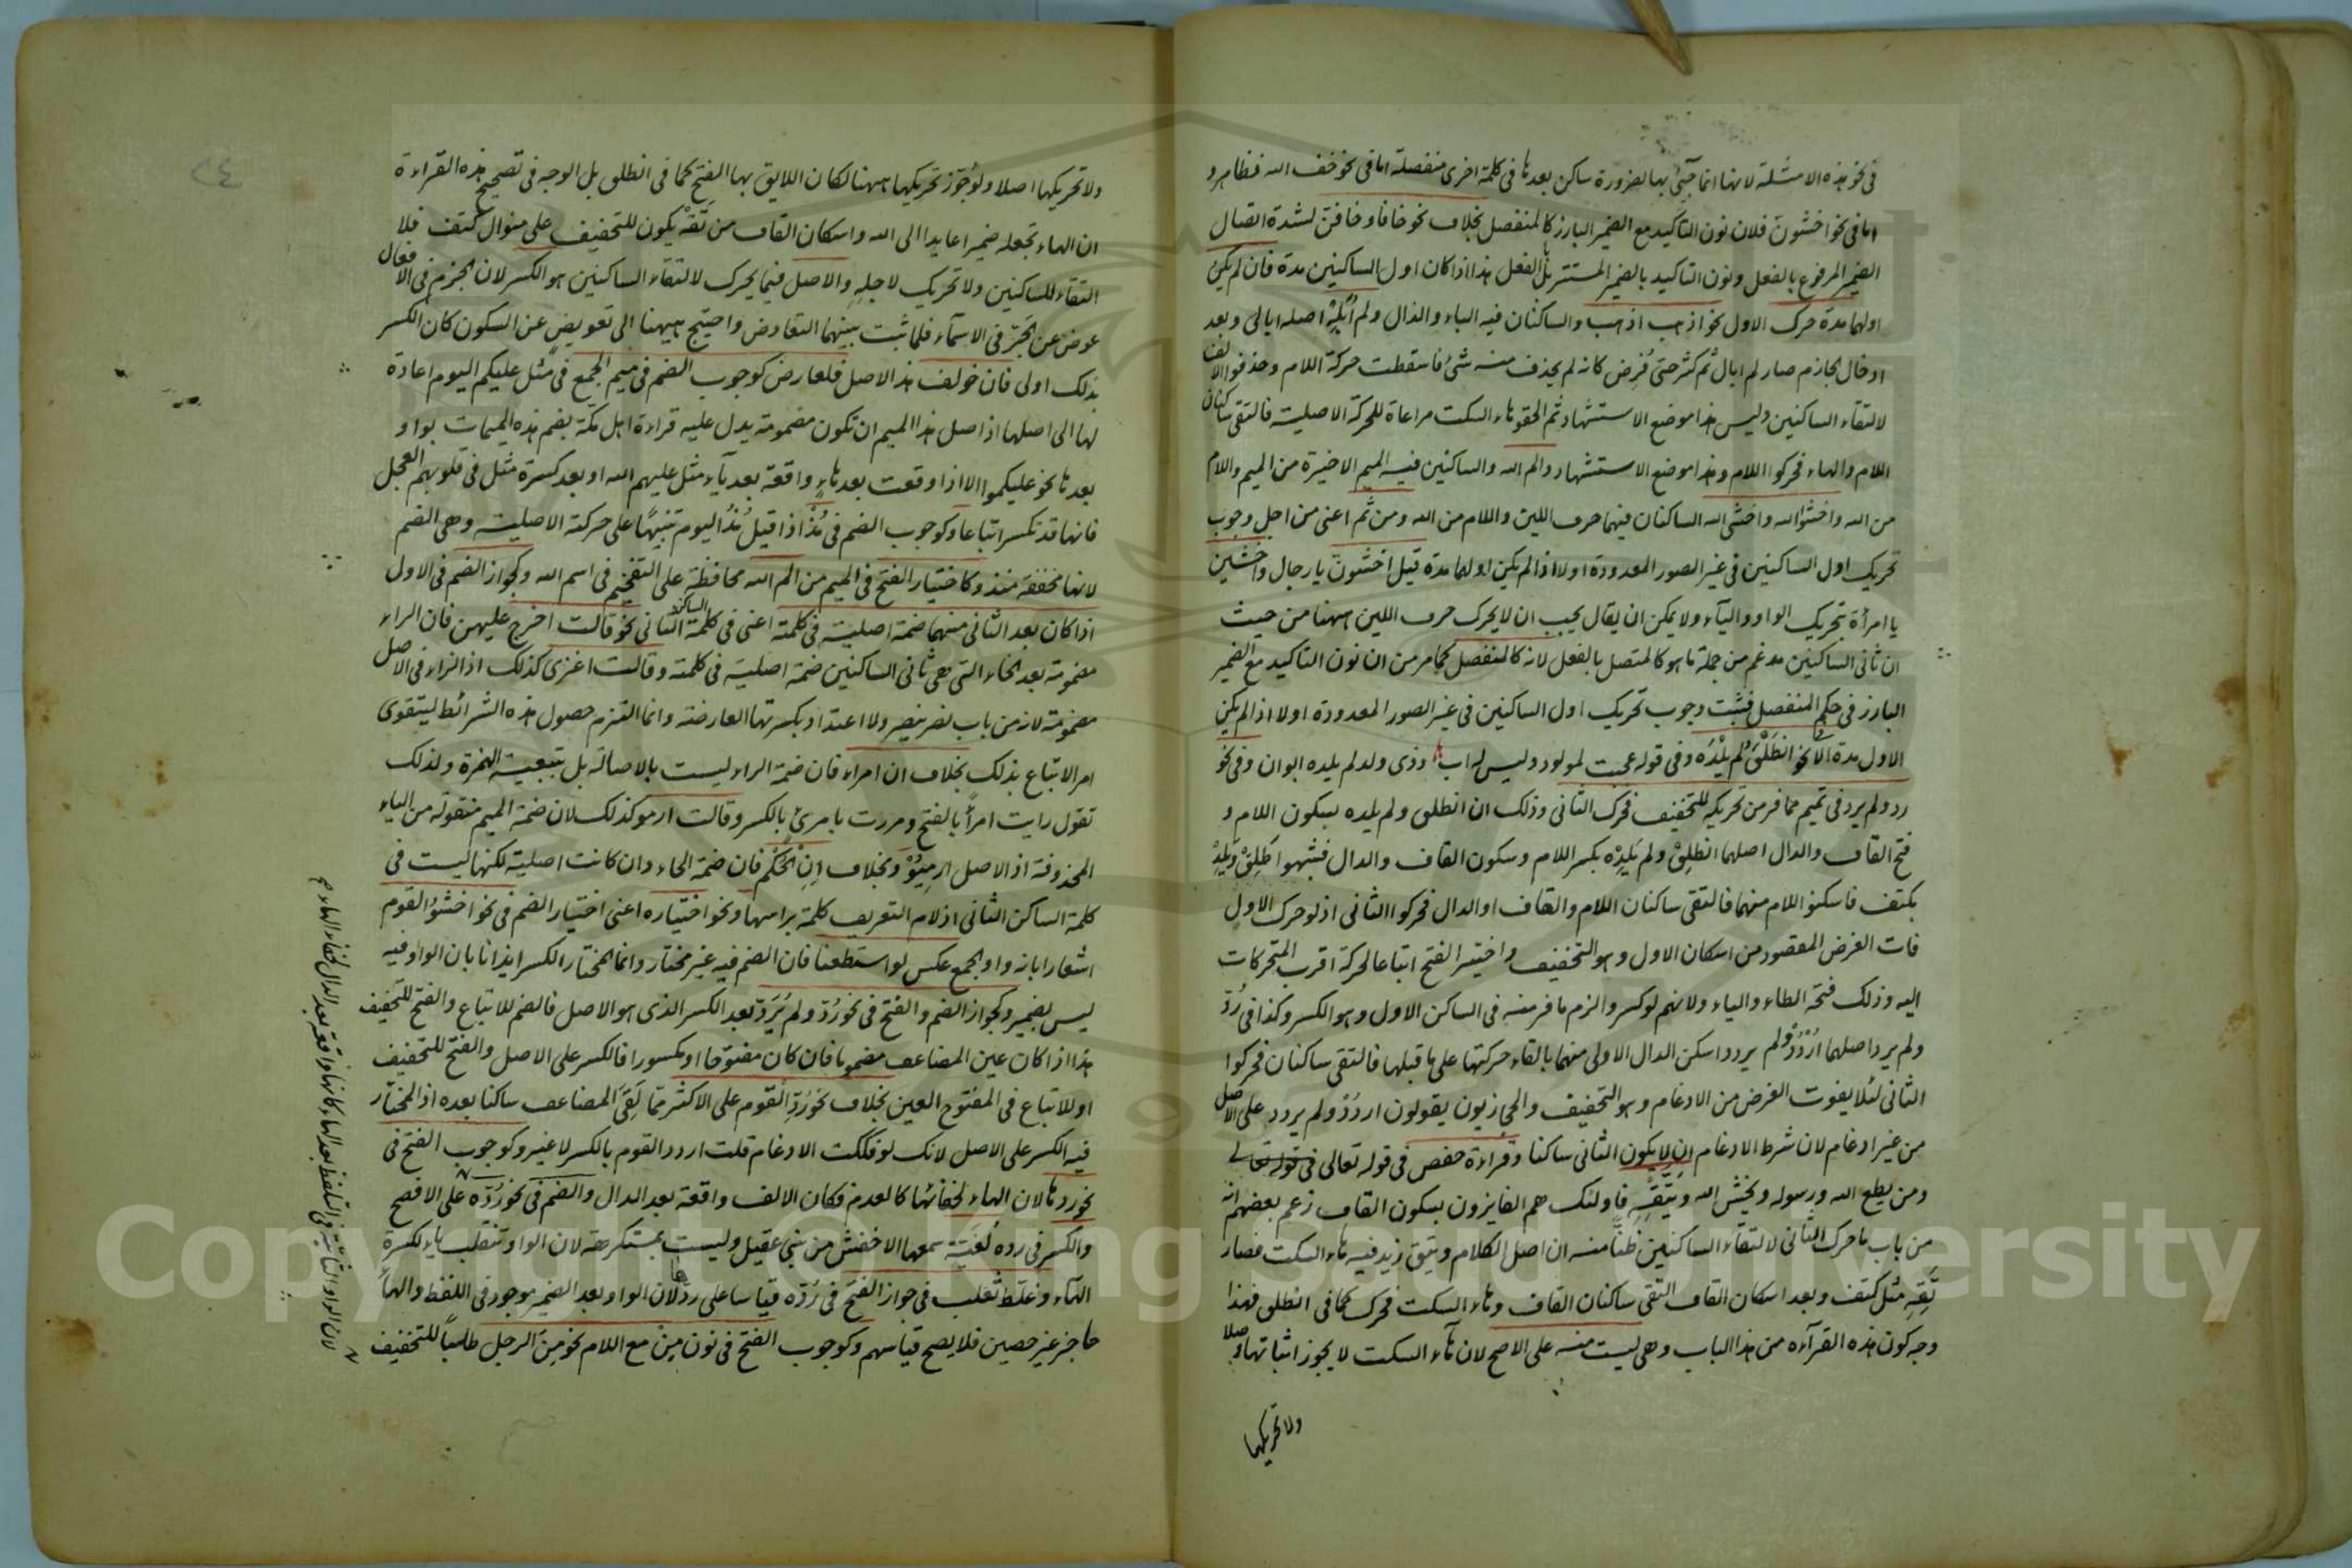 في نحو هذه الامثلة لانها انما جئ بها لضرورة ساكن بعدها في كلمة اخرى منفصلة اما في نحو خف الله فظاهر و
اما في نحو اخشون فلان نون التاكيد مع الضمير البارز كالمنفصل بخلاف نحو خافا وخافن لشدة اتصال
الضمير المرفوع بالفعل ونون التاكيد بالضمير المستتر بل الفعل هذا اذا كان اول الساكنين مدة فان لم يكن
اولهما مدة حرك الاول نحو اذهب اذهب والساكنان فيه الباء والذال ولم أبَلِهْ اصله ابالى وبعد
ادخال الجازم صار لم ابال ثم كثر حتى فُرِض كانه لم يحذف منه شئ فاسقطت حركة اللام وحذفوا الالف
لالتقاء الساكنين وليس هذا موضع الاستشهاد ثم الحقوهاء السكت مراعاة للحركة الاصلية فالتقى ساكنان
اللام والهاء فحركوا اللام وهذا موضع الاستشهاد والم الله والساكنين فيه الميم الاخيرة من الميم واللام
من الله واخشوا الله واخشى الله الساكنان فيهما حرف اللين واللام من الله ومن ثم اعنى من اجل وجوب
تحريك اول الساكنين في غير الصور المعدودة اولا اذا لم يكن اولهما مدة قيل اخشون يا رجال واخشين
يا امرأة بتحريك الواو والياء ولا يمكن ان يقال يجب ان لا يحرك حرف اللين ههنا من حيث
ان ثانى الساكنين مدغم من جملة ما هو كالمتصل بالفعل لانه كالمنفصل كما مر من ان نون التاكيد مع الضمير
البارز في حكم المنفصل فثبت وجوب تحريك اول الساكنين في غير الصور المعدودة اولا اذا لم يكن
الاول مدة الا في نحو انطَلْقَ ولم يَلْدَه وفي قوله عجبت لمولود وليس له اب وذى ولد لم يلده ابوان وفي نحو
رد ولم يرد في تميم مما فر من تحريكه للتخفيف فحرك الثانى وذلك ان انطلق ولم يلده بسكون اللام و
فتح القاف والدال اصلهما انطلِقْ ولم يَلِدْه بكسر اللام وسكون القاف والدال فشبهوا طَلِقْ ويَلِدْ
بكتف فاسكنوا اللام منهما فالتقى ساكنان اللام والقاف او الدال فحركوا الثانى اذ لو حرك الاول
فات الغرض المقصود من اسكان الاول وهو التخفيف واختير الفتح اتباعا لحركة اقرب المتحركات
اليه وذلك فتحة الطاء والياء ولانهم لو كسروا لزم ما فر منه في الساكن الاول وهو الكسر وكذا في رُدّ
ولم يرد اصلهما اُرْدُدْ ولم يردد اسكن الدال الاولى منهما بالقاء حركتها على ما قبلها فالتقى ساكنان فحركوا
الثانى لئلا يفوت الغرض من الادغام وهو التخفيف والحجازيون يقولون اردُدْ ولم يردد على الاصل
من غير ادغام لان شرط الادغام ان لا يكون الثانى ساكنا وقراءة حفص في قوله تعالى في قوله تعالى
ومن يطع الله ورسوله ويخش الله ويَتَّقْهِ فاولئك هم الفايزون بسكون القاف زعم بعضهم انه
من باب ما حرك الثانى لالتقاء الساكنين ظنًّا منه ان اصل الكلام ويتق زيد فيه هاء السكت فصار
تَقِهِ مثل كتف وبعد اسكان القاف التقى ساكنان القاف وهاء السكت فحرك كما في انطلق فهذا
وجه كون هذه القراءه من هذا الباب وهى ليست منه على الاصح لان هاء السكت لا يجوز اثباتها وصلا
ولا تحريكها
ولا تحريكها اصلا ولو جُوّز تحريكها ههنا لكان اللايق بها الفتح كما في انطلق بل الوجه في تصحيح هذه القراءة
ان الهاء تجعله ضميرا عايدا الى الله واسكان القاف من تَقْهِ يكون للتخفيف على منوال كتف فلا
التقاء للساكنين ولا تحريك لاجلهِ والاصل فيما يحرك لالتقاء الساكنين هو الكسر لان الجزم في الافعال
عوض عن الجَرّ في الاسماء فلما ثبت بينهما التعاوض واحتيج ههنا الى تعويض عن السكون كان الكسر
بذلك اولى فان خولف هذا الاصل فلعارض كوجوب الضم في ميم الجمع في مثل عليكم اليوم اعادة
لها الى اصلها اذ اصل هذا الميم ان تكون مضمومة يدل عليه قراءة اهل مكة بضم هذه الميمات بواو
بعدها نحو عليكموا الا اذا وقعت بعد هاءٍ واقعة بعد ياء مثل عليهم الله او بعد كسرة مثل في قلوبهم العجل
فانها قد تكسر اتباعا وكوجوب الضم في مُذْ اذا قيل مُذُ اليوم تنبيها على حركة الاصلية وهى الضم
لانها مخففة منذ وكاختيار الفتح في الميم من الم الله محافظة على التفخيم في اسم الله وكجواز الضم في الاول
اذا كان بعد الثانى منهما ضمة اصلية في كلمته اعنى في كلمة الساكن الثانى نحو قالت اخرج عليهن فان الراء
مضمومة بعد الخاء التى هى ثانى الساكنين ضمة اصلية في كلمته وقالت اغزى كذلك اذ الزاء في الاصل
مضمومة لانه من باب نصر ينصر ولا اعتداد بكسرتها العارضة وانما التزم حصول هذه الشرائط ليتقوى
امر الاتباع بذلك بخلاف ان امراء فان ضمة الراء ليست بالاصالة بل بتبعية الهمزة ولذلك
تقول رايت امرأً بالفتح ومررت بامرئ بالكسر وقالت ارموا كذلك لان ضمة الميم منقولة من الياء
المحذوفة اذ الاصل اِرمِيُوْ وبخلاف اِنِ الحُكْم فان ضمة الحاء وان كانت اصلية لكنها ليست في
كلمة الساكن الثانى اذ لام التعريف كلمة براسها ونحو اختياره اعنى اختيار الضم في نحو اخشَوُا القوم
اشعارا بانه واو الجمع عكس لو استطعنا فان الضم فيه غير مختار وانما المختار الكسر ايذانا بان الواو فيه
ليس بضمير وكجواز الضم والفتح في نحو رُدّ ولم يُرَدّ بعد الكسر الذى هو الاصل فالضم للاتباع والفتح للتخفيف
هذا اذا كان عين المضاعف مضموما فان كان مفتوحا او مكسورا فالكسر على الاصل والفتح للتخفيف
او للاتباع في المفتوح العين بخلاف نحو رُدِّ القوم على الاكثر مما لَقِىَ المضاعف ساكنا بعده اذ المختار
فيه الكسر على الاصل لانك لو فككت الادغام قلت اردد القوم بالكسر لا غير وكوجوب الفتح في
نحو ردها لان الهاء لخفائها كالعدم فكان الالف واقعة بعد الدال والضم في نحو رُدّه على الافصح
والكسر في رده لُغَيّة سمعها الاخفش من بنى عقيل وليست بمستكرهة لان الواو تنقلب ياء لكسرة
الهاء وغلّط ثعلب في جواز الفتح في رُدّه قياسا على ردها لان الواو بعد الضمير موجود في اللفظ والهاء
حاجز غير حصين فلا يصح قياسهم وكوجوب الفتح في نون مِنْ مع اللام نحو مِنَ الرجل طلبًا للتخفيف
لان الواو الثابتة في التلفظ بعد الهاء كانها واقعة بعد الدال لخفاء الهاء
Copyright © King Saud University